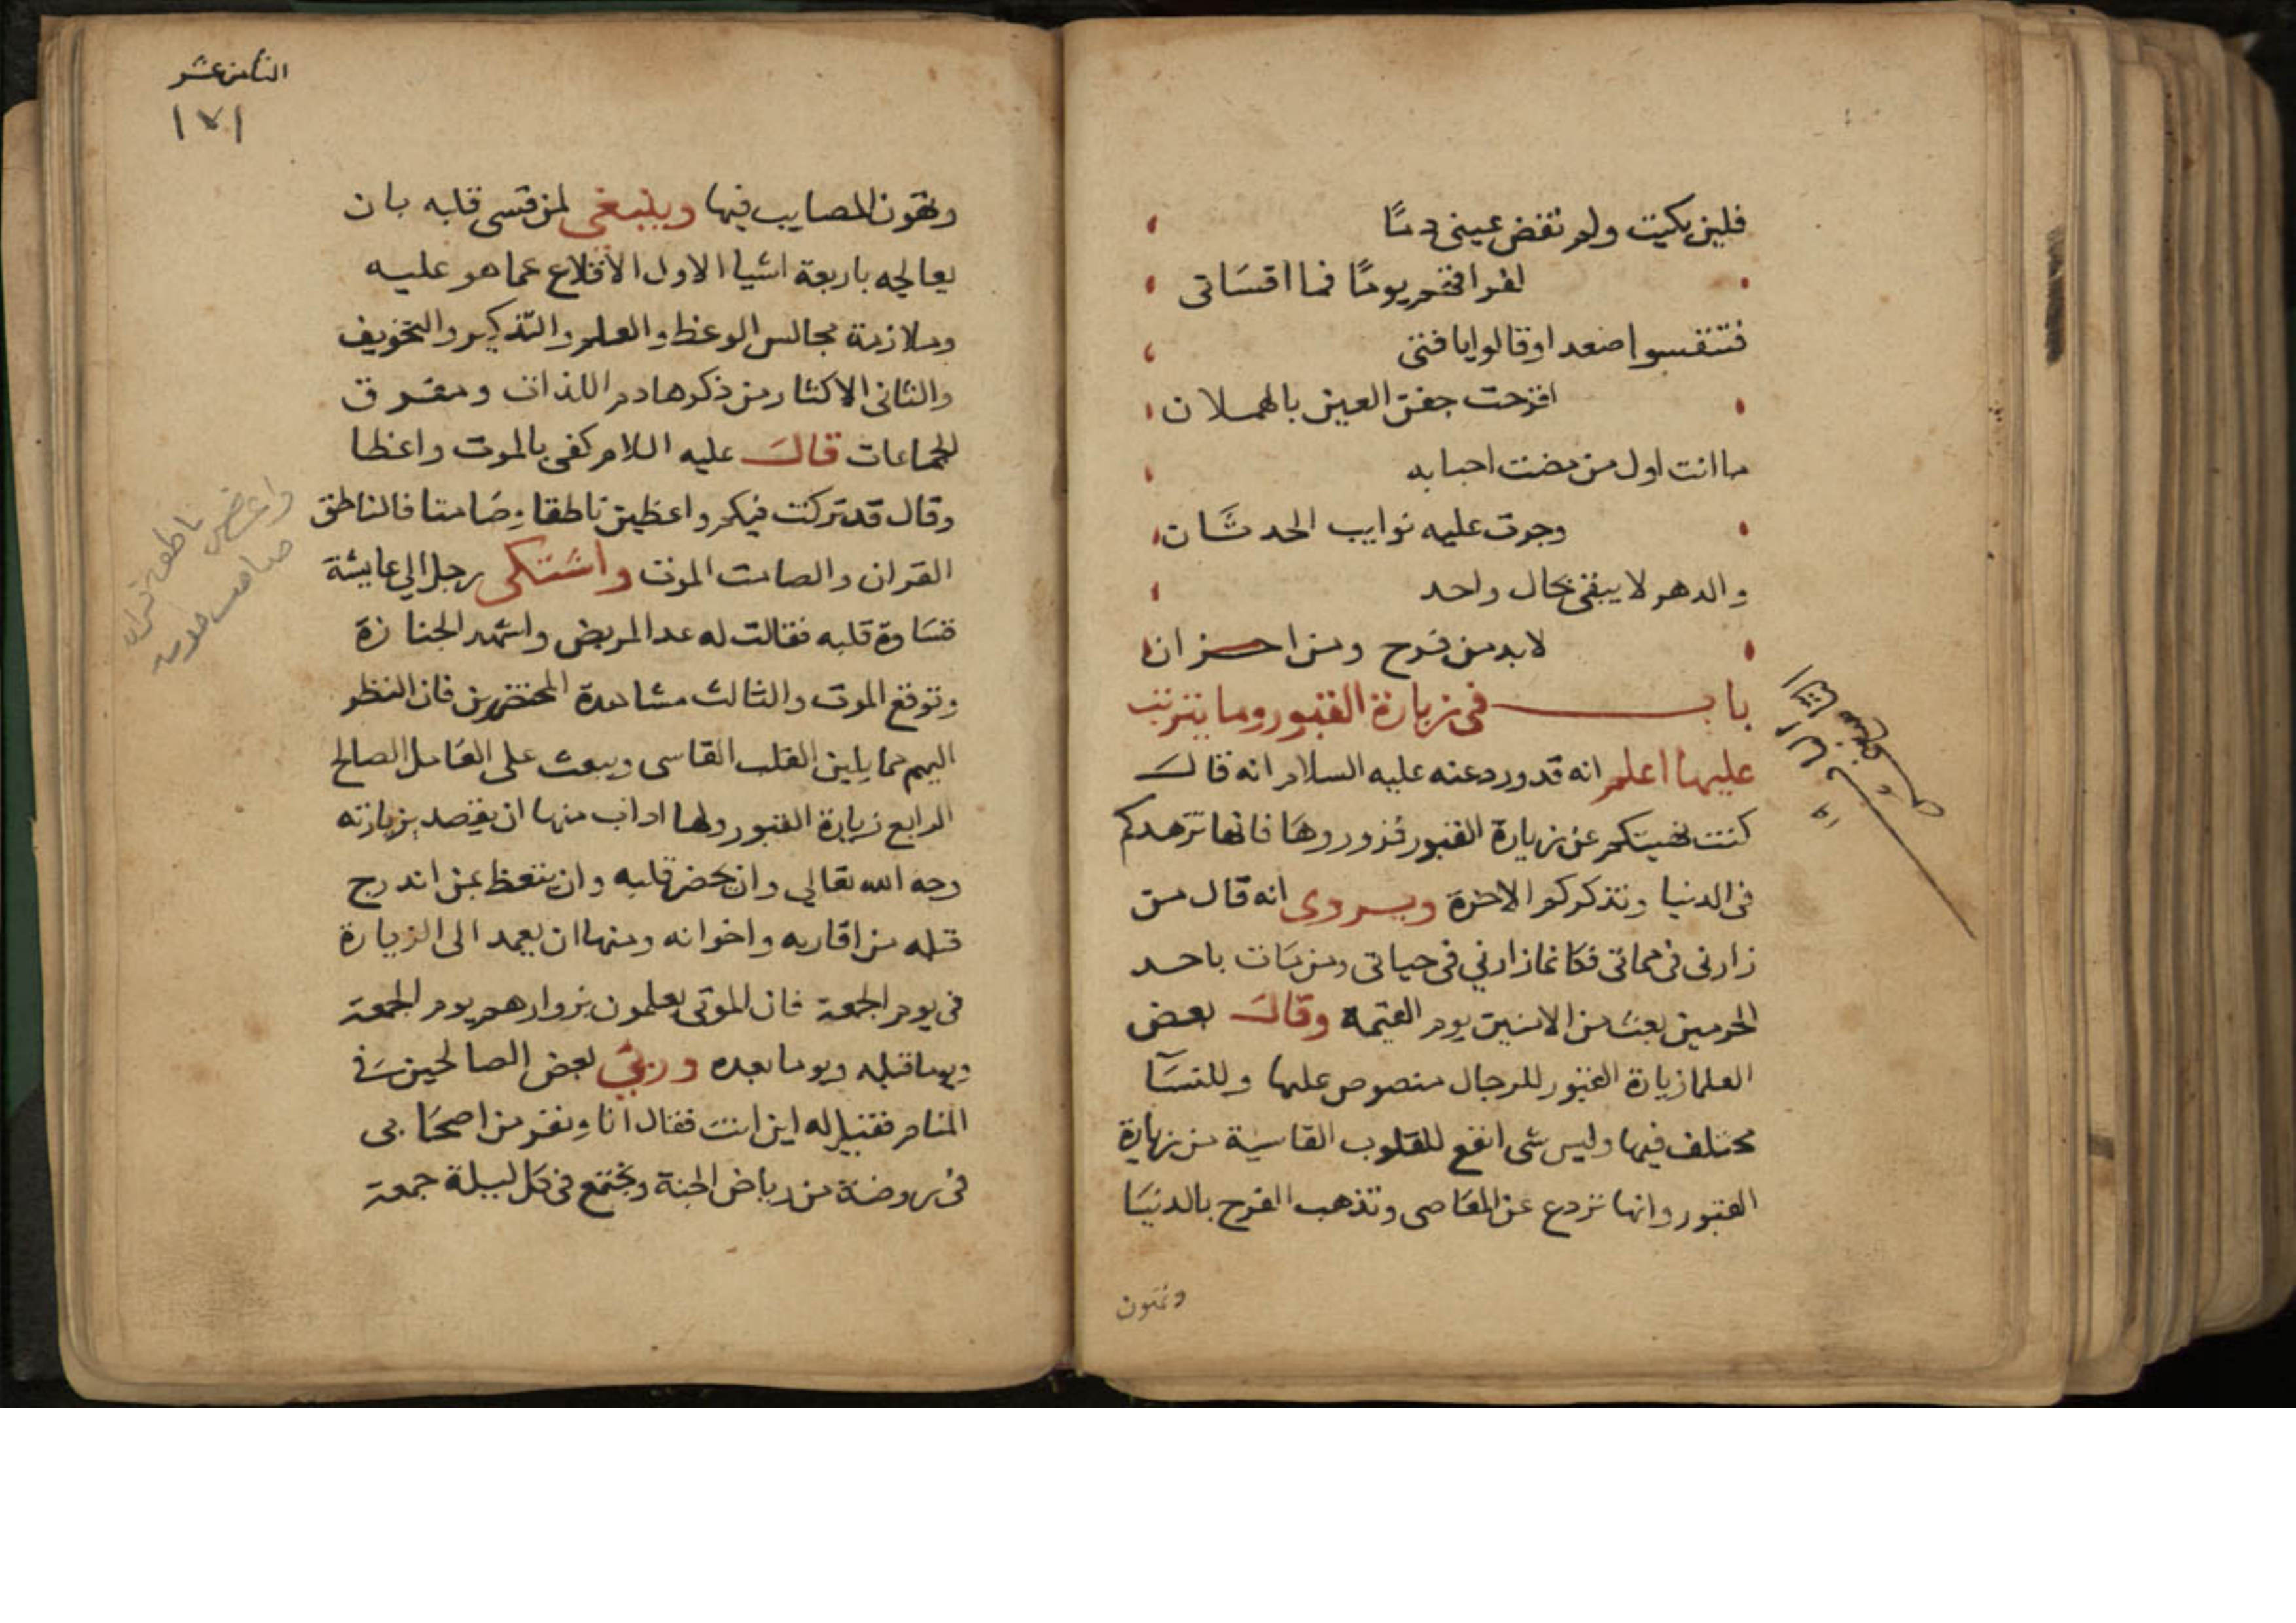 فلين بكيت ولم تفض عيني دمًا
لفراقكم يومًا فما اقسَاتى
فتنفسوا صعدا وقالوا يا فتى
اقرحت جفن العين بالهملان
ما انت اول من مضت احبابه
وجرت عليه نوايب الحدثَان
والدهر لا يبقى بحال واحد
لا بد من فرح ومن احزان
باب فى زيارة القبور وما يترتب
عليها اعلم انه قد ورد عنه عليه السلام انه قالَ
كنت نهيتكم عن زيارة القبور فزوروهَا فانها تزهدكم
فى الدنيا وتذكركم الاخرة ويروى انه قال من
زارنى فى مماتى فكانما زارني فى حياتى ومن مَات باحد
الحرمين بعث من الامنين يوم القيمة وقالَ بعض
العلما زيارة القبور للرجال منصوص عليها وللنسَآ
مختلف فيها وليس شى انفع للقلوب القاسية من زيارة
القبور وانها تردع عن المعَاصى وتذهب الفرح بالدنيَا
وتهون
الثامن عشر
١٧١
وتهون المصايب فيها وينبغى لمن قسى قلبه بان
يعالجه باربعة اشيا الاول الاقلاع عما هو عليه
وملازمة مجالس الوعظ والعلم والتذكير والتخويف
والثانى الاكثار من ذكر هادم اللذات ومفرق
الجماعات قالَ عليه اللام كفى بالموت واعظا
وقال قد تركت فيكم واعظين ناطقا وصَامتا فالناطق
القران والصامت الموت واشتكى رجل الي عايشة
قسَاوة قلبه فقالت له عد المريض واشهد الجنازة
وتوقع الموت والثالث مشاهدة المحتضرين فان النظر
اليهم مما يلين القلب القاسى ويبعث على العَامل الصالح
الرابع زيارة القبور ولها اداب منها ان يقصد بزيارته
وجه الله تعالي وان يحضر قلبه وان يتعظ بمن اندرج
قبله من اقاربه واخوانه ومنها ان يعمد الى الزيارة
فى يوم الجمعة فان الموتى يعلمون بزوارهم يوم الجمعة
ويوما قبله ويوما بعده وريىَ بعض الصالحين فَى
المنام فقيل له اين انت فقال انا ونفر من اصحَابى
فى روضة من رياض الجنة ونجتمع فى كل ليلة جمعة